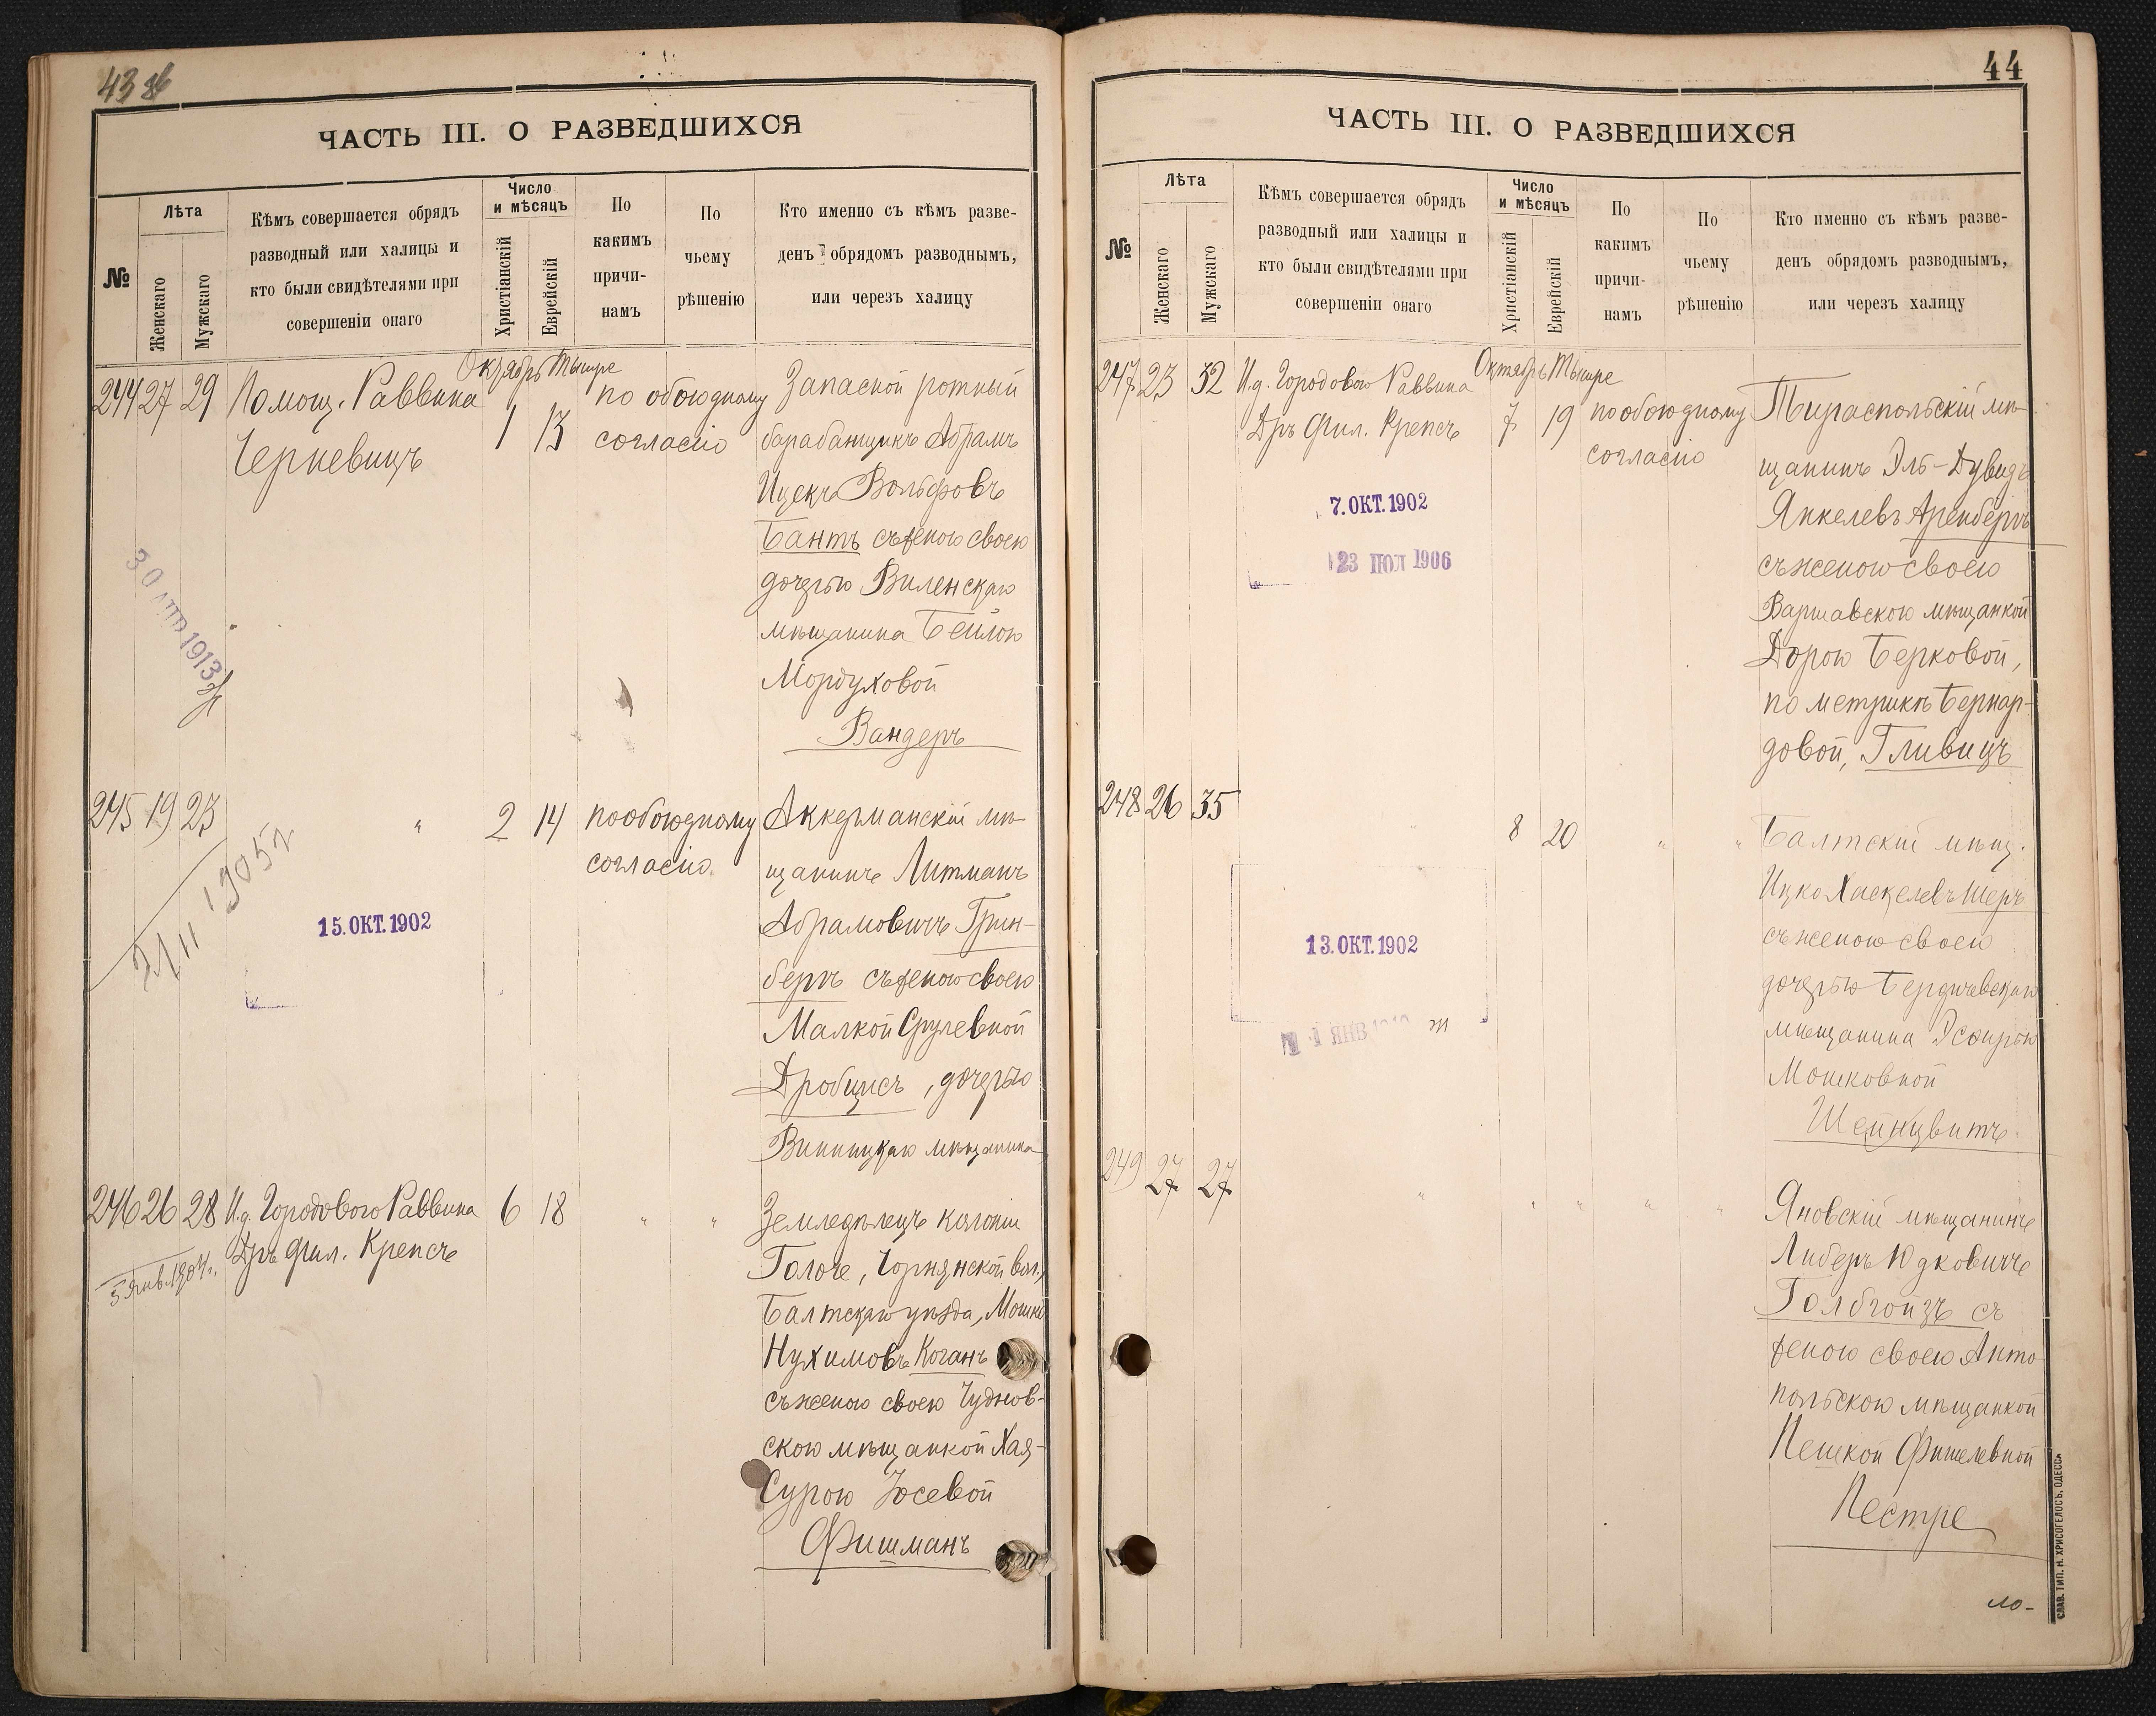 43 об
ЧАСТЬ III. О РАЗВЕДШИХСЯ
№
Лѣта
Женскаго
Мужскаго
Кѣмъ совершается обрядъ
разводный или халицы и
кто были свидѣтелями при
совершеніи онаго
Число
и мѣсяцъ
Христіанскій
Еврейскій
По
какимъ
причи-
намъ
По
чьему
рѣшенію
Кто именно съ кѣмъ разве-
денъ обрядомъ разводнымъ,
или черезъ халицу
Октябрь Тышре
244 27 29 Помощ. Раввина
Черневицъ
1 13
по обоюдному
согласію
Запасной ротный
барабанщикъ Абрамъ
Ицекъ Вольфовъ
Бантъ съ женою своею
дочерью Виленскаго
мѣщанина Бейлою
Мордуховой
Вандеръ
1913
245 19 23 " 2 14
по обоюдному
согласію.
Аккерманскій мѣ-
щанинъ Литманъ
Абрамовичъ Грин-
бергъ съ женою своею
Малкой Срулевной
Дробцисъ, дочерью
Винницкаго мѣщанина
15. ОКТ. 1902
246 26 28 И.д. Городового Раввина
Дръ Фил. Крепсъ
6 18 " "
5 Янв. 1904 г.
Земледѣлецъ колоніи
Голоче, Чорнянской вол.,
Балтскаго уѣзда, Мошко
Нухимовъ Коганъ
съ женою своею Чуднов-
скою мѣщанкой Хая-
Сурою Іосевой
Фишманъ
44
ЧАСТЬ III. О РАЗВЕДШИХСЯ
№
Лѣта
Женскаго
Мужскаго
Кѣмъ совершается обрядъ
разводный или халицы и
кто были свидѣтелями при
совершеніи онаго
Число
и мѣсяцъ
Христіанскій
Еврейскій
По
какимъ
причи-
намъ
По
чьему
рѣшенію
Кто именно съ кѣмъ разве-
денъ обрядомъ разводнымъ,
или черезъ халицу
Октябрь Тышре
247 23 32 И.д. Городового Раввина
Дръ Фил. Крепсъ
7 19
по обоюдному
согласію
Тираспольскій мѣ-
щанинъ Эль-Дувидъ
Янкелевъ Аренбергъ
съ женою своею
Варшавскою мѣщанкой
Дорою Берковой,
по метрикѣ Бернар-
довой, Гливицъ
7. ОКТ. 1902
23 ІЮЛ 1906
248 26 35 8 20 " "
Балтскій мѣщ.
Ицко Хаскелевъ Шеръ
съ женою своею
дочерью Бердичевскаго
мѣщанина Эсфирью
Мошковной
Шейнцвитъ.
13. ОКТ. 1902
ЯНВ
249 27 27 " " " " "
Яновскій мѣщанинъ
Либеръ Юдковичъ
Голбгойзъ съ
женою своею Анто
польскою мѣщанкой
Пешкой Фишелевной
Пестре
СЛАВ. ТИП. Н. ХРИСОГЕЛОСЪ, ОДЕССА